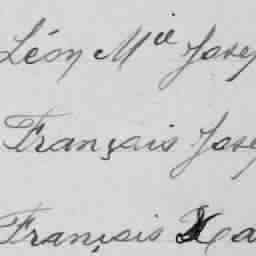 Léon Mie Jose
Français Jose
François Xa